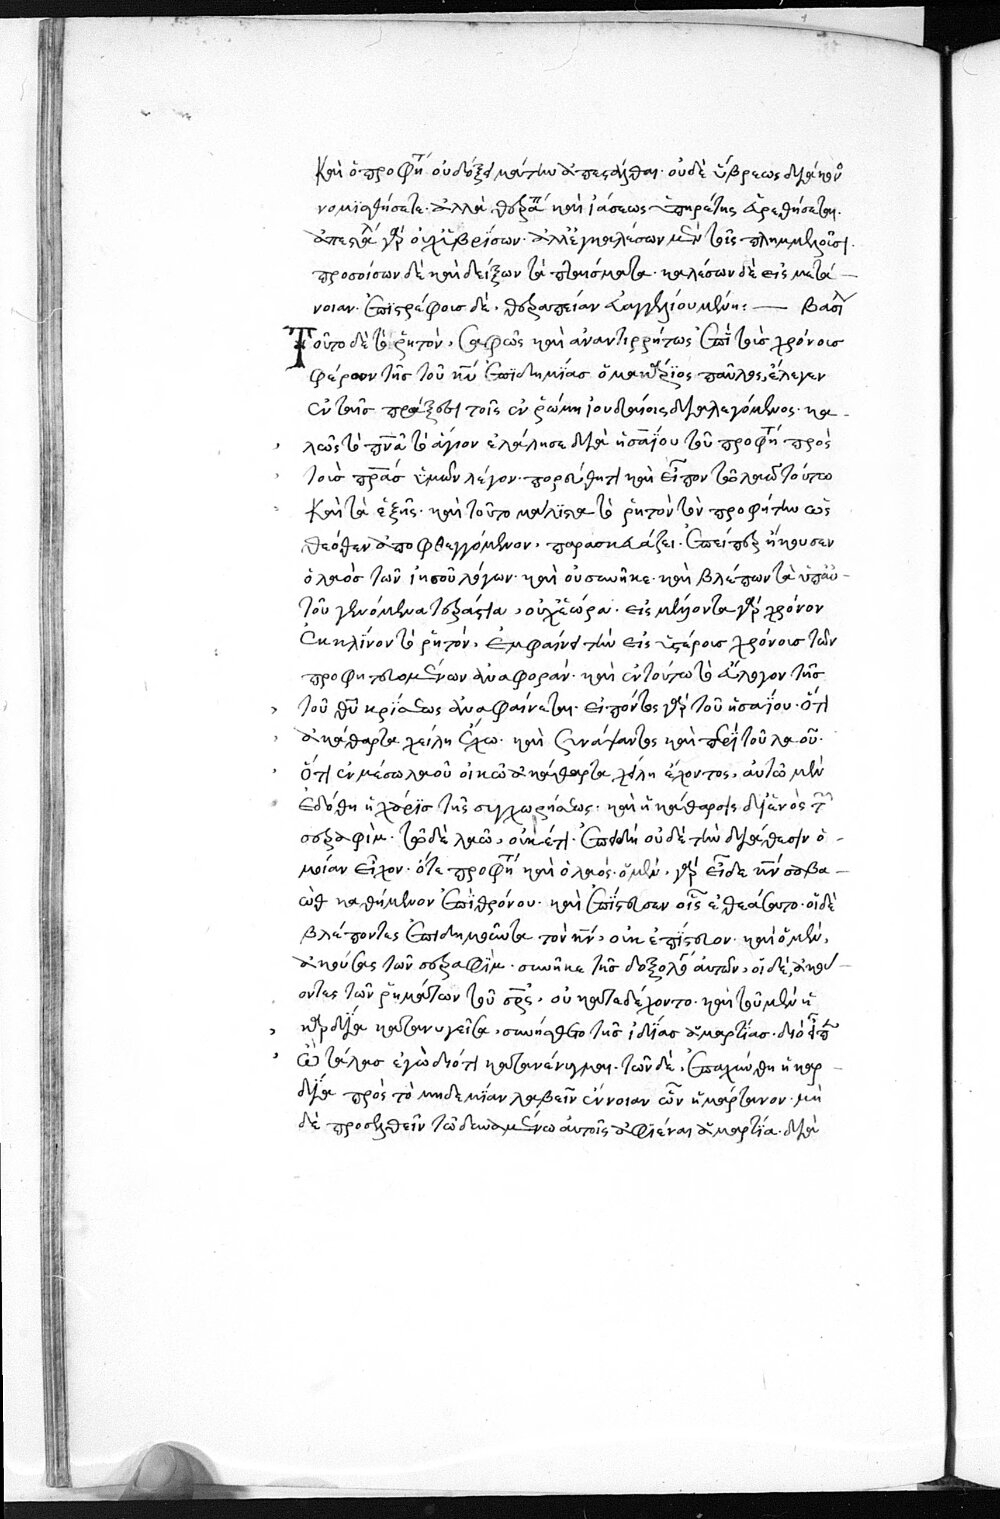 Καὶ ὁ προφή οὐ δόξει μάτην ἀπεστάλθαι· οὐδὲ ὕβρεως διάκον
νομισθήσεται· ἀλλὰ θεραπεί καὶ ἰάσεως ὑπηρέτης εὑρεθήσεται·
ἀπεστάλ γὰρ οὐχ ὑβρίσων· ἀλλ' ἐγκαλέσων μὲν τοῖς πλημμελοῦσι·
προσοίσων δὲ καὶ δείξων τὰ πταίσματα· καλέσων δὲ εἰς μετά –
νοιαν· ἐπιστρέφουσι δὲ, θεραπείαν εὐαγγελιούμενος: — Βασιλ
Τοῦτο δὲ τὸ ῥητὸν, σαφῶς καὶ ἀναντιρρήτως ἐπὶ τοὺς χρόνους
φέρων τῆς τοῦ κυ ἐπιδημίας ὁ μακάριος παῦλος, ἔλεγεν
ἐν ταῖς πράξεσι τοῖς ἐν ῥώμη ἰουδαίοις διαλεγόμενος· κα –
λῶς τὸ πνα τὸ ἅγιον ἐλάλησε διὰ ἡσαΐου τοῦ προφή πρὸς
τοὺς πρας ὑμῶν λέγον· πορεύθητι καὶ εἶπον τῶ λαῶ τούτω
Καὶ τὰ ἑξῆς· καὶ τοῦτο μάλιστα τὸ ῥητὸν τὸν προφήτην ὡς
θεόθεν ἀποφθεγγόμενον, παρασκευάζει· ἐπεί περ ἤκουσεν
ὁ λαὸς τῶν ἰησοῦ λόγων· καὶ οὐ συνῆκε· καὶ βλέπων τὰ ὑπ' αὐ –
τοῦ γενόμενα τεράστια, οὐχ ἑώρα· εἰς μέλλοντα γὰρ χρόνον
ἐκκλῖνον τὸ ῥητὸν, ἐμφαίνει τὴν εἰς ὑστέρους χρόνους τῶν
προφητευομένων ἀναφοράν· καὶ ἐν τούτω τὸ εὔλογον τῆς
τοῦ θυ κρίσεως ἀναφαίνεται· εἰπόντος γὰρ τοῦ ἡσαΐου· ὅτι
ἀκάθαρτα χείλη ἔχω· καὶ συνάψαντος καὶ περὶ τοῦ λαοῦ·
ὅτι ἐν μέσω λαοῦ οἰκῶ ἀκάθαρτα χείλη ἔχοντος, αὐτῶ μὲν
ἐδόθη ἡ χάρις τῆς συγχωρήσεως· καὶ ἡ κάθαρσις δι' ἑνὸς τῶν
σεραφὶμ· τῶ δὲ λαῶ, οὐκ ἔτι· ἐπειδὴ οὐδὲ τὴν διάθεσιν ὁ –
μοίαν εἶχον· ὅτε προφή καὶ ὁ λαός· ὁ μὲν, γὰρ εἶδε κν σαβα –
ὼθ καθήμενον ἐπὶ θρόνου· καὶ ἐπίστευσεν οἷς ἐθεάσατο· οἱ δὲ
βλέποντες ἐπιδημοῦντα τὸν κν, οὐκ ἐπίστευον· καὶ ὁ μὲν,
ἀκούσας τῶν σεραφὶμ· συνῆκε τῆς δοξολο αὐτῶν, οἱ δὲ, ἀκού –
οντες τῶν ῥημάτων τοῦ σρς, οὐ κατεδέχοντο· καὶ τοῦ μὲν ἡ
καρδία κατανυγεῖσα, συνήσθετο τῆς ἰδίας ἁμαρτίας· διὸ εἶπ
ὢ τάλας ἐγὼ διότι κατανένυγμαι· τῶν δὲ, ἐπαχύνθη ἡ καρ –
δία πρὸς τὸ μηδεμίαν λαβεῖν ἔννοιαν ὧν ἡμάρτανον· μὴ
δὲ προσελθεῖν τῶ δυναμένω αὐτοῖς ἀφιέναι ἁμαρτία· διὰ